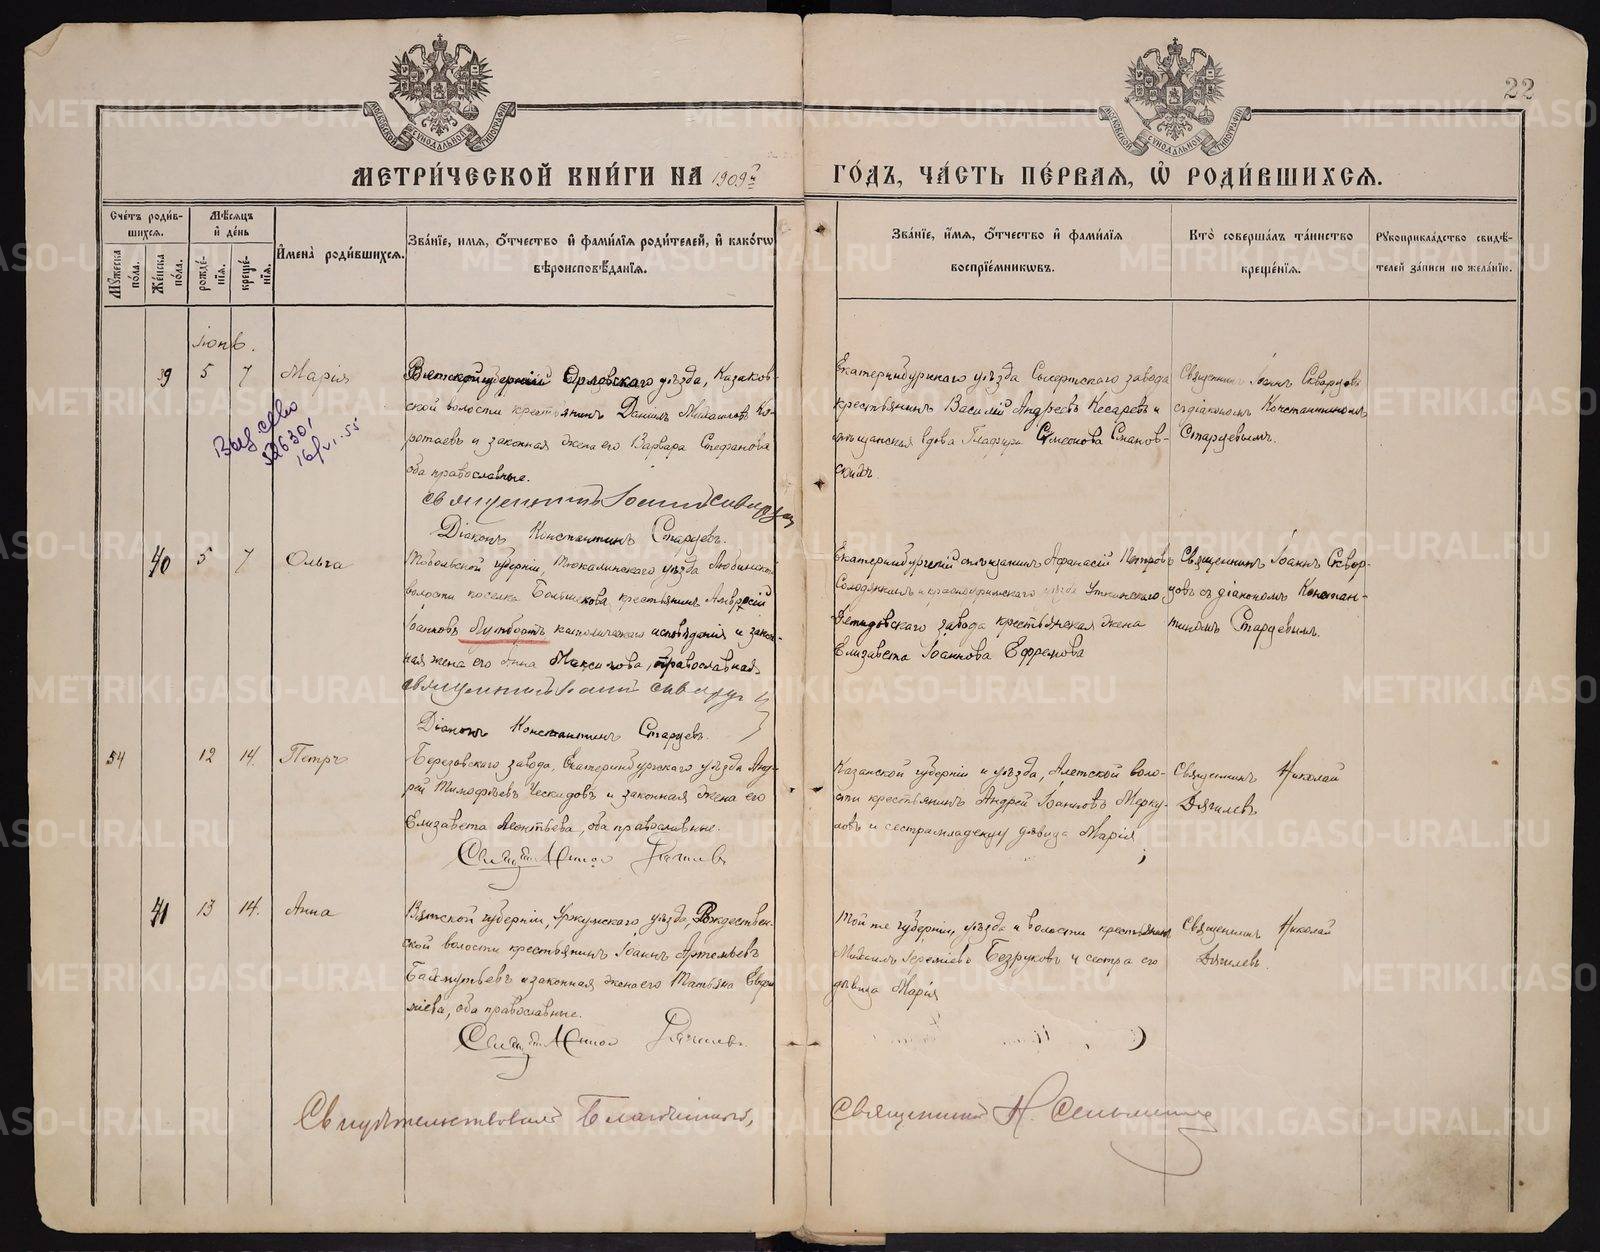 22
МОСКОВСКОЙ СѴНОДАЛЬНОЙ ТИПОГРАФІИ
МОСКОВСКОЙ СѴНОДАЛЬНОЙ ТИПОГРАФІИ
МЕТРИ́ЧЕСКОЙ КНИ́ГИ НА 1909 го́дъ, ча́сть пе́рвая, ѡ҆ роди́вшихсѧ.
Сче́тъ роди́в-
шихсѧ.
Мѣ́сѧцъ
и҆ де́нь
Мꙋ́жеска по́ла.
Же́нска по́ла.
рожде́-
нїѧ.
креще́-
нїѧ.
И҆мена̀ роди́вшихсѧ.
Зва́нїе, и҆мѧ, ѻ҆́тчество и҆ фами́лїѧ роди́телей, и҆ како́гѡ
вѣроисповѣ́данїѧ.
Зва́нїе, и҆́мѧ, ѻ҆́тчество и҆ фами́лїѧ
воспрїе́мникѡвъ.
Кто̀ соверша́лъ та́инство
креще́нїѧ.
Рꙋкоприкла́дство свидѣ́-
телей за́писи по жела́нїю.
Іюнь.
39 5 7 Марія
Вятской губерніи Орловскаго уѣзда, Казаков-
ской волости крестьянинъ Даніилъ Михайловъ Ко-
ротаевъ и законная жена его Варвара Стефановна
оба православные.
священникъ Іоаннъ Скварцовъ
Діаконъ Константинъ Старцевъ.
Екатеринбургскаго уѣзда Сысертскаго завода
крестьянинъ Василій Андреевъ Кесаревъ и
мѣщанская вдова Глафира Симеонова Станов-
скихъ
Священникъ Іоаннъ Скварцовъ
съ діакономъ Константиномъ
Старцевымъ.
16/VI-55
40 5 7 Ольга
Тобольской губерніи, Тюкалинскаго уѣзда Любинской
волости поселка Большекова крестьянинъ Амвросій
Іоанновъ католическаго исповѣданія и закон-
ная жена его Анна Максимова, православная
священникъ Іоаннъ
Діаконъ Константинъ Старцевъ.
Екатеринбургскій мѣщанинъ Афанасій Петровъ
Солодянкинъ и красноуфимскаго уѣзда Уткинскаго
Демидовскаго завода крестьянская жена
Елизавета Іоаннова Ефремова
Священникъ Іоаннъ Сквор-
цовъ съ діакономъ Констан-
тиномъ Старцевымъ.
54 12 14. Петръ
Березовскаго завода, Екатеринбургскаго уѣзда Анд-
рей Тимофѣевъ Ческидовъ и законная жена его
Елизавета Леонтьева, оба православные.
Свящ. Николай Дягилевъ
Казанской губерніи и уѣзда, Алетской воло-
сти крестьянинъ Андрей Іоанновъ Мерку-
ловъ и сестра младенцу дѣвица Марія
Священникъ Николай
Дягилевъ
41 13 14. Анна
Вятской губерніи, Уржумскаго уѣзда, Рождествен-
ской волости крестьянинъ Іоаннъ Артемьевъ
Бахмутьевъ и законная жена его Татьяна Евфи-
міева, оба православные.
Свящ. Николай Дягилевъ
Той же губерніи, уѣзда и волости крестьянинъ
Михаилъ Іереміевъ Безруковъ и сестра его
дѣвица Марія
Священникъ Николай
Дягилевъ.
Свидѣтельствовалъ Благочинный, Священникъ Н.
METRIKI.GASO-URAL.RU